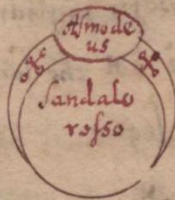 Asmode
us
Sandalo
rosso